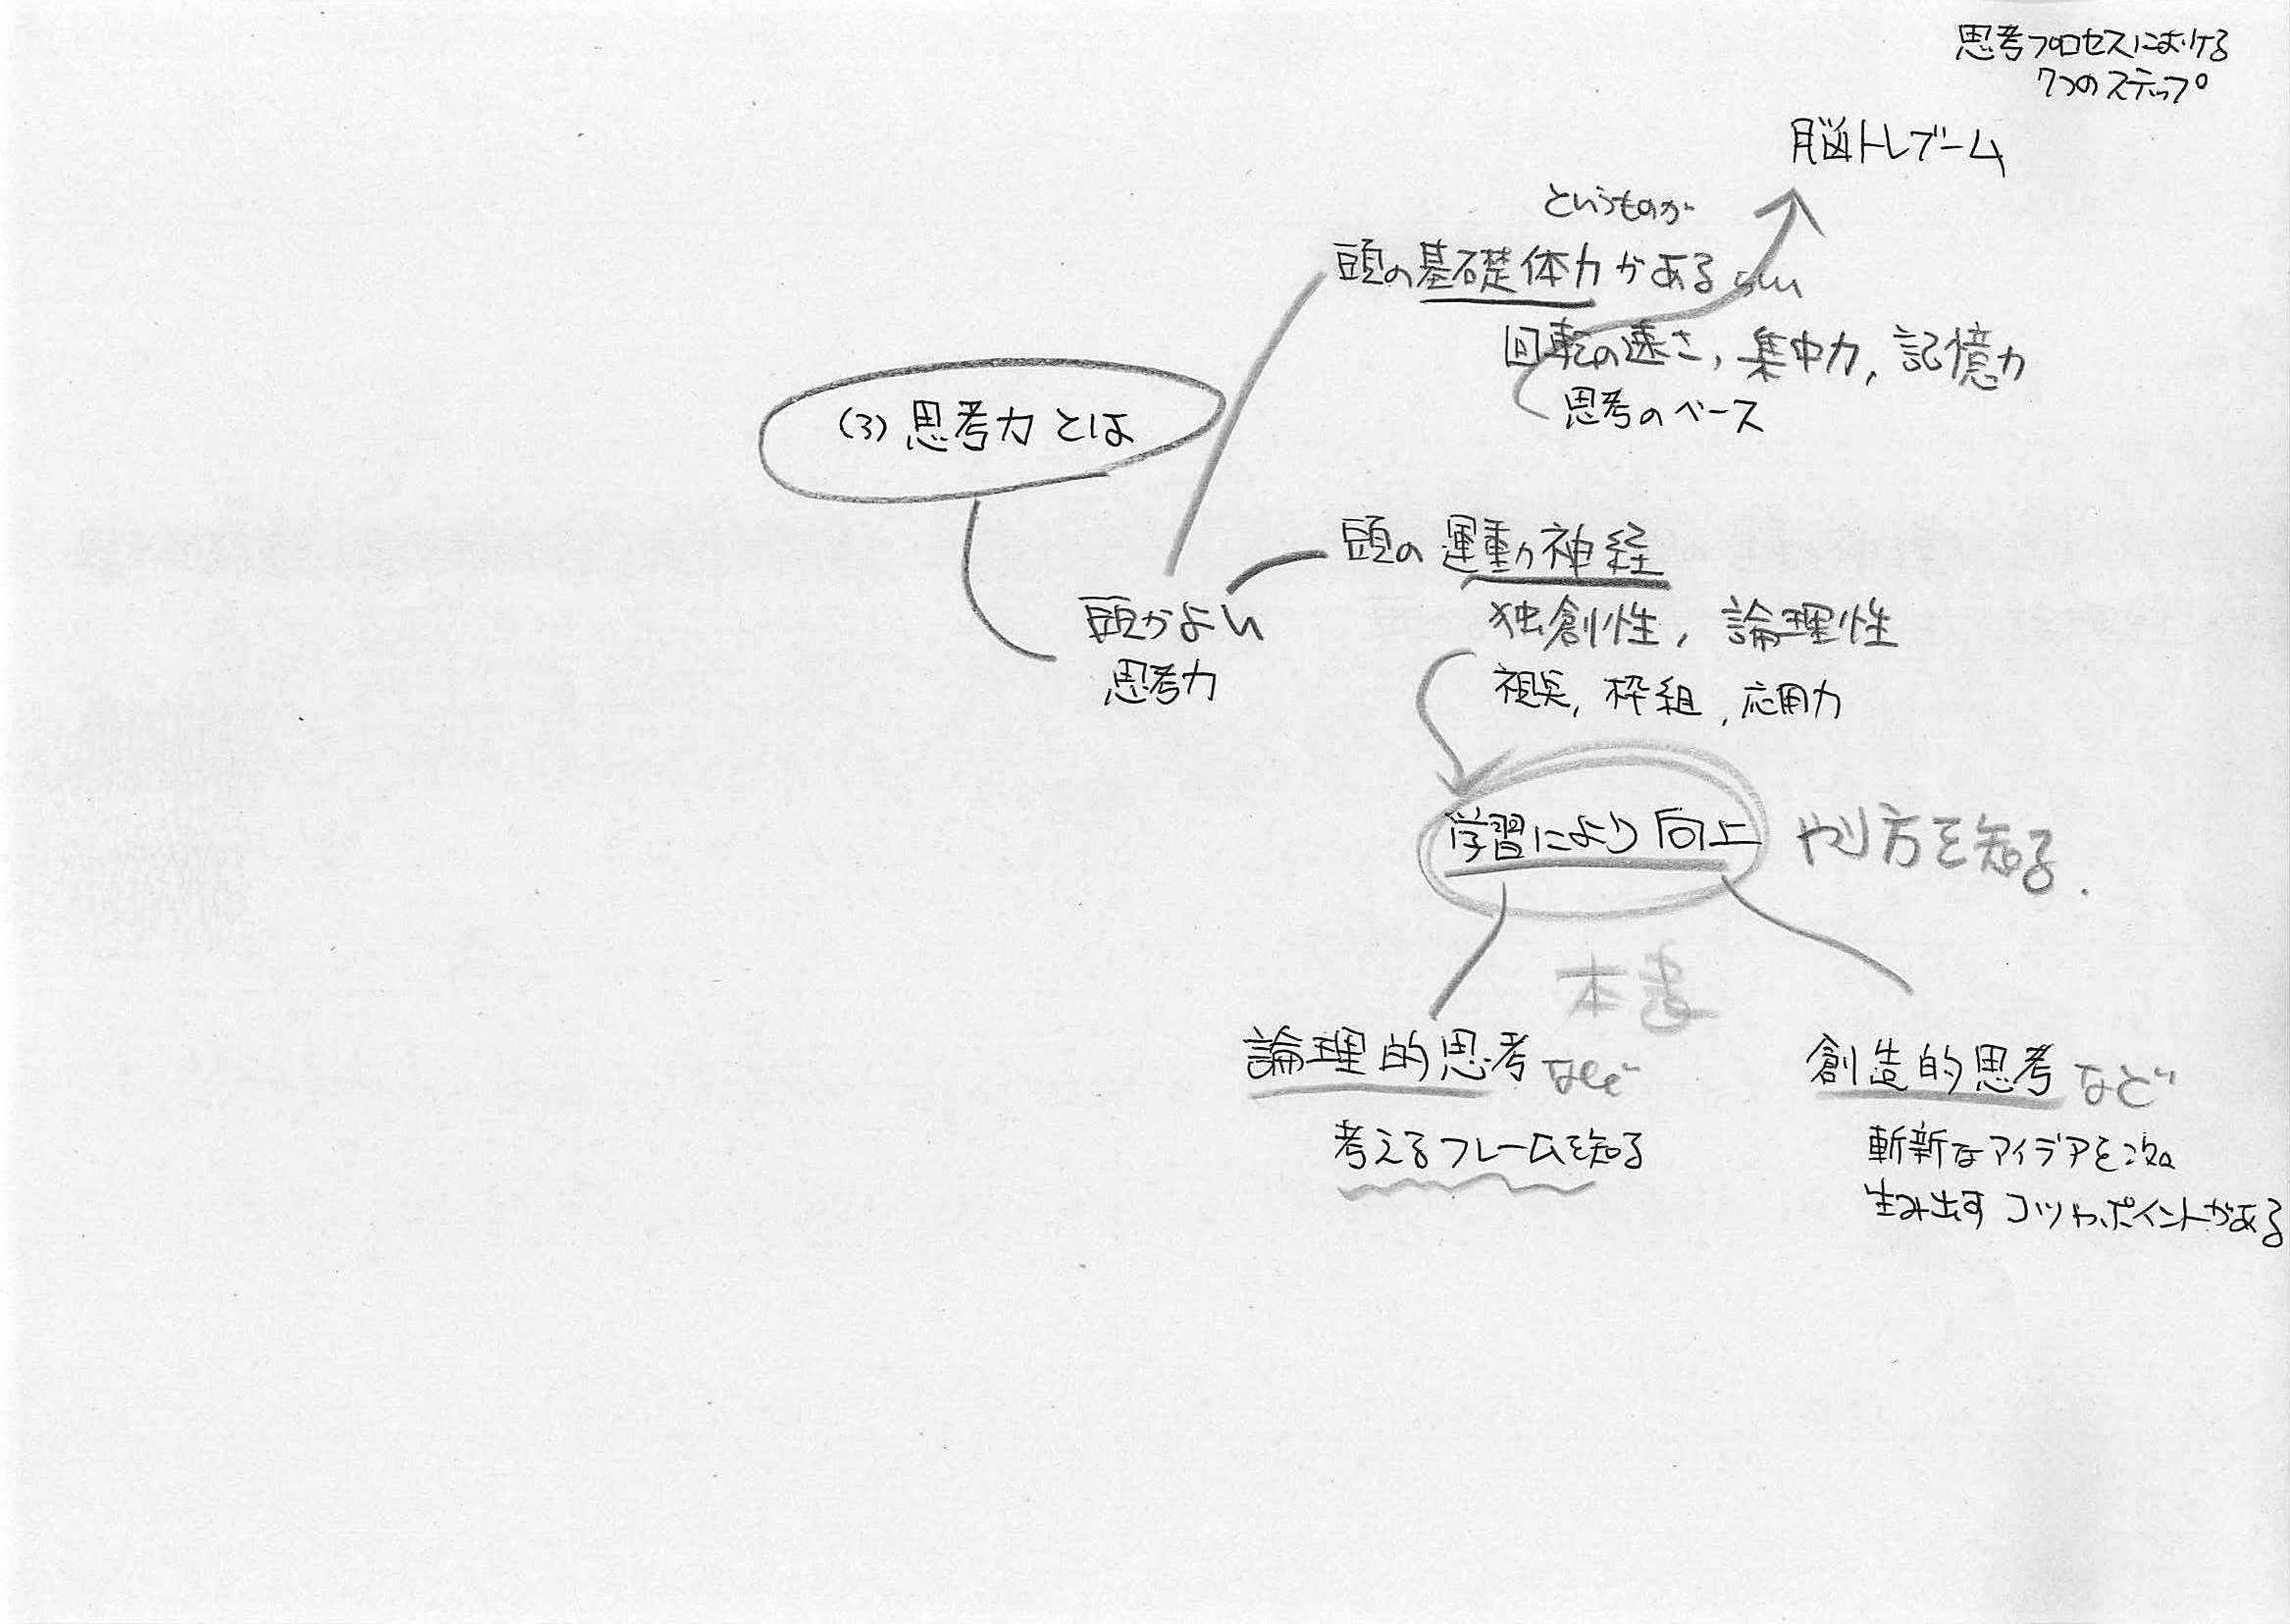 思考プロセスにおける
7つのステップ
脳トレブーム
というものが
頭の基礎体力があるらしい
回転の速さ, 集中力, 記憶力
思考のベース
(3) 思考力とは
頭の運動神経
独創性, 論理性
視点, 枠組, 応用力
頭がよい
思考力
学習により向上
やり方を知る.
本書
論理的思考など
考えるフレームを知る
創造的思考など
斬新なアイデアを次々
生み出すコツやポイントがある